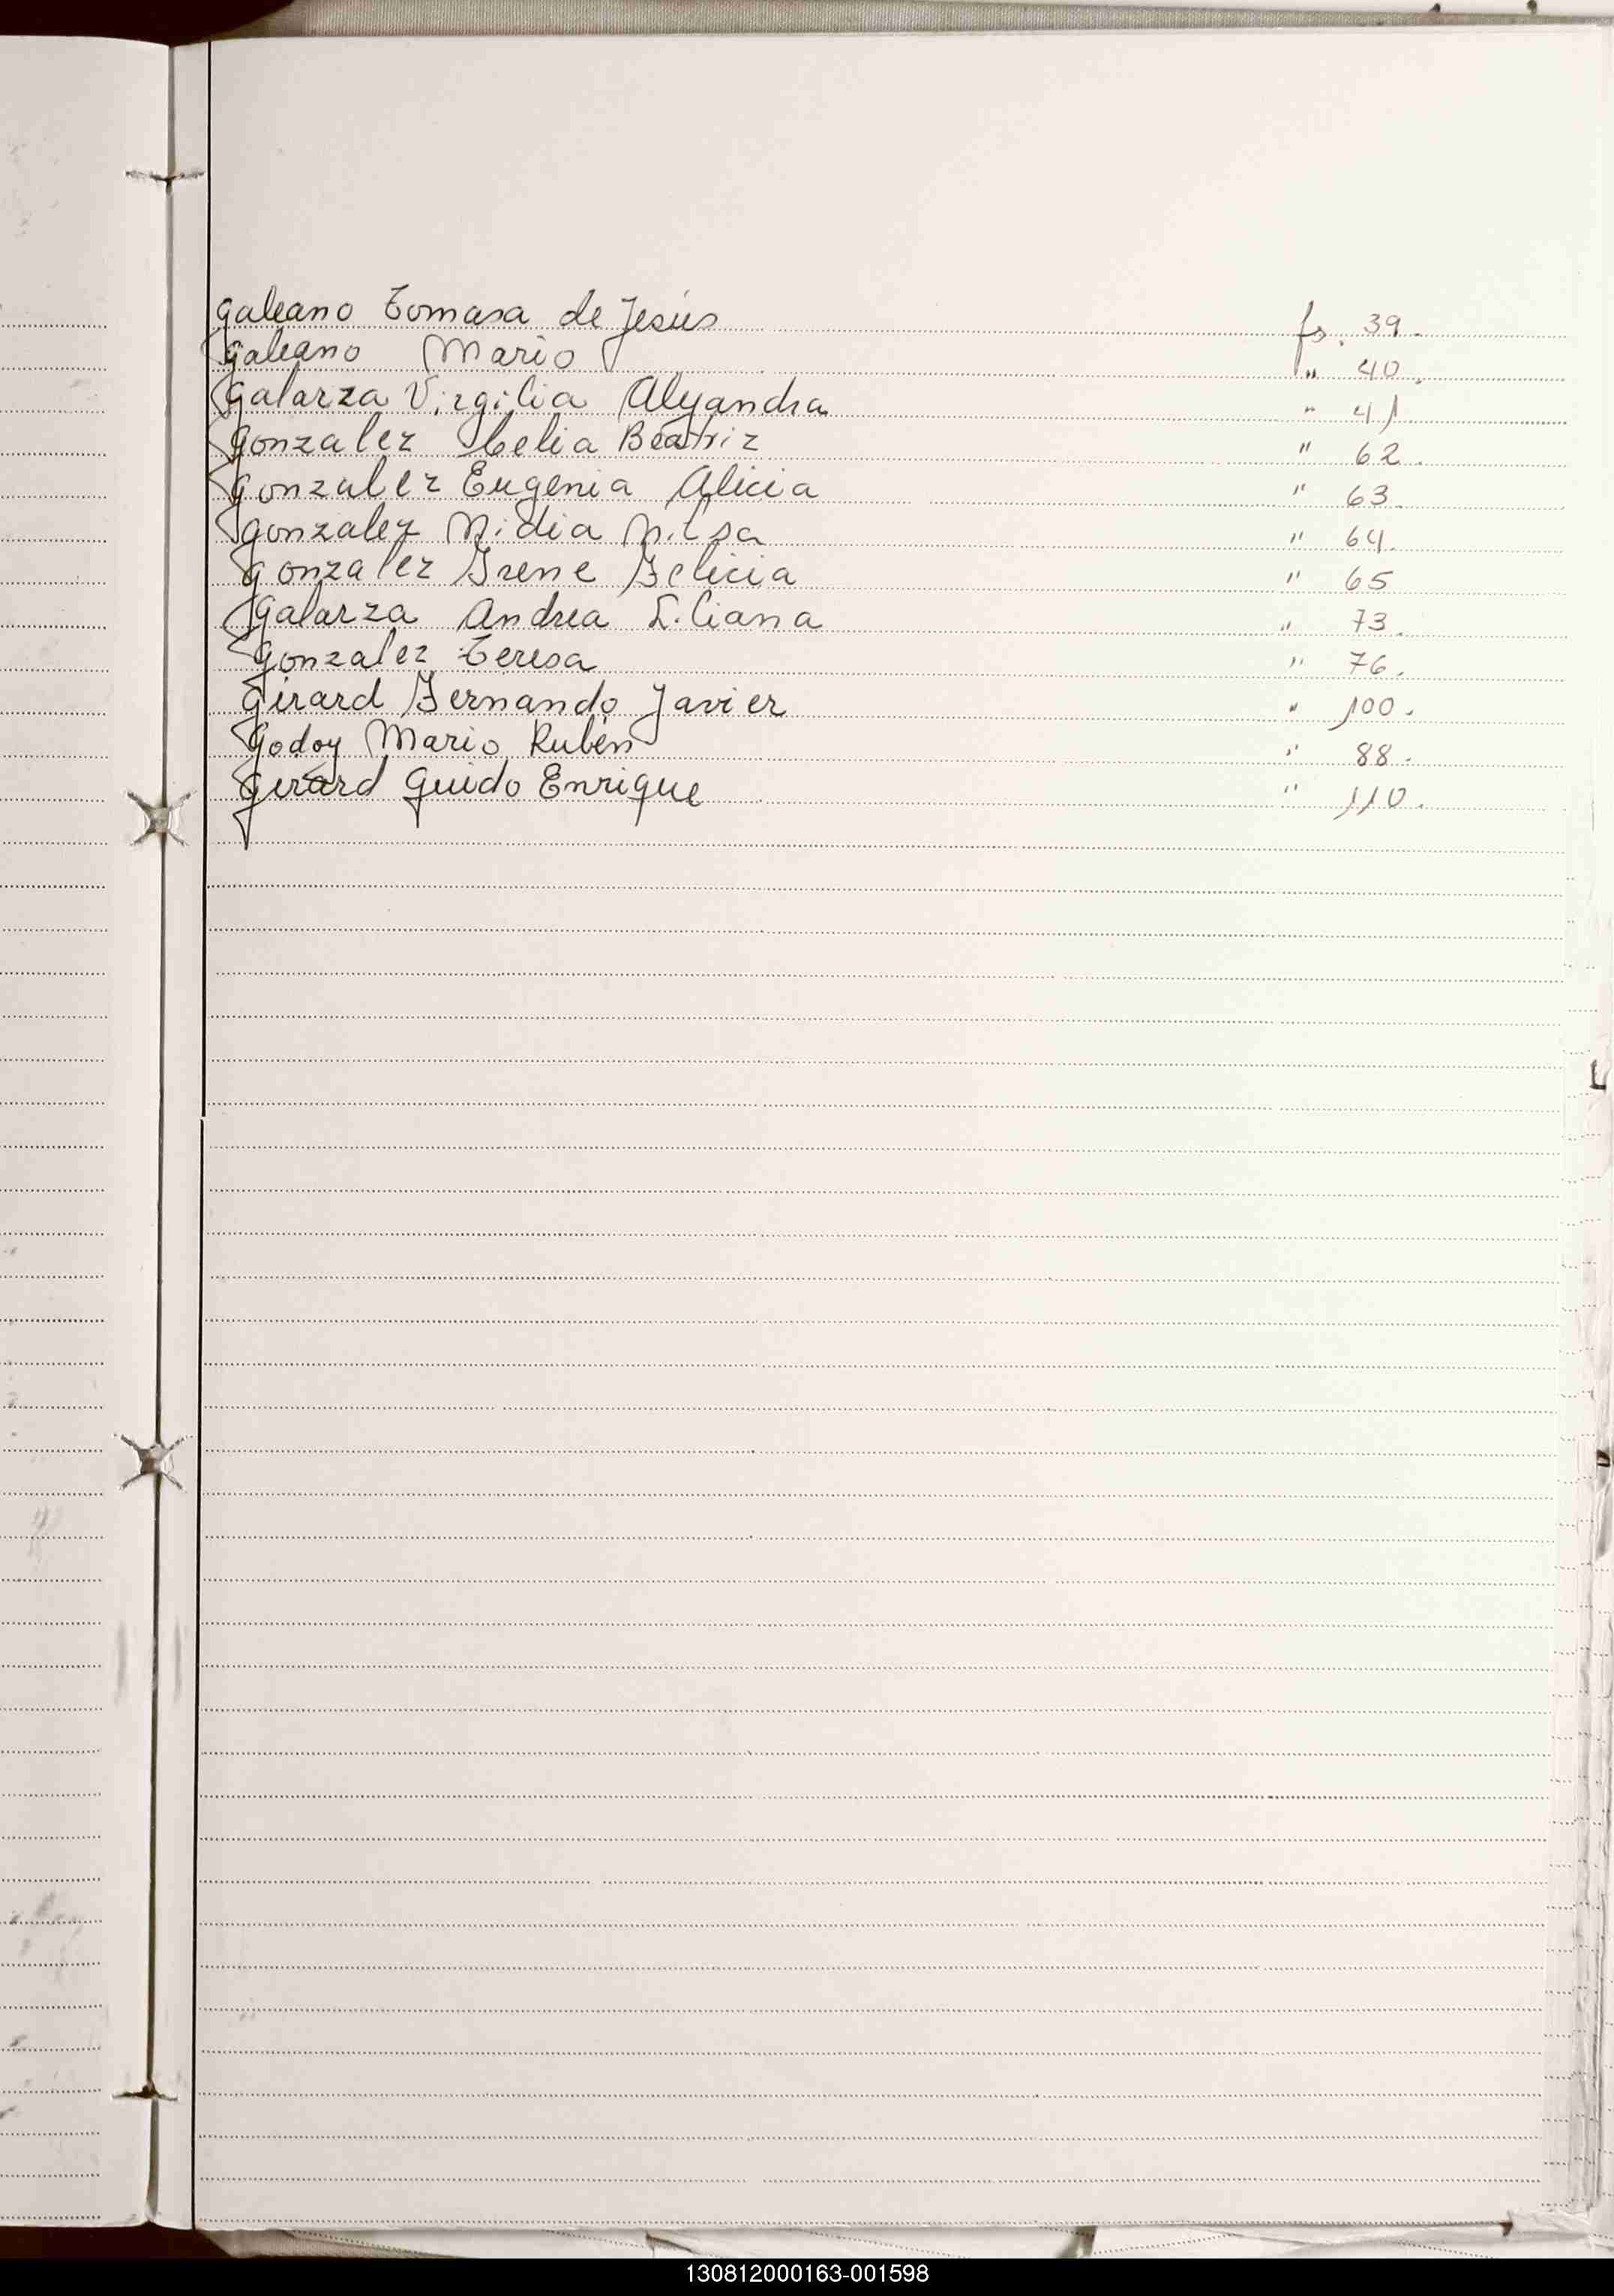 Galeano Tomasa de Jesús fs. 39.
Galeano Mario " 40.
Galarza Virgilia Alejandra " 41
Gonzalez Celia Beatriz " 62.
Gonzalez Eugenia Alicia " 63.
Gonzalez Nidia Nilsa " 64.
Gonzalez Irene Felicia " 65
Galarza Andrea Liliana " 73.
Gonzalez Teresa " 76.
Girard Fernando Javier " 100.
Godoy Mario Rubén " 88.
Gerard Guido Enrique " 110.
130812000163-001598